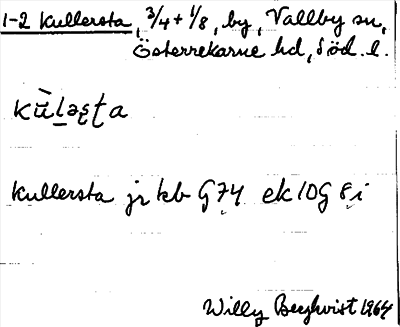 1-2 Kullersta, 3/4 + 1/8, by, Vallby sn,
Österrekarne hd, Söd. l.
Kullersta jr kb G74 ek 10G 8i
Willy Bergkvist 1964